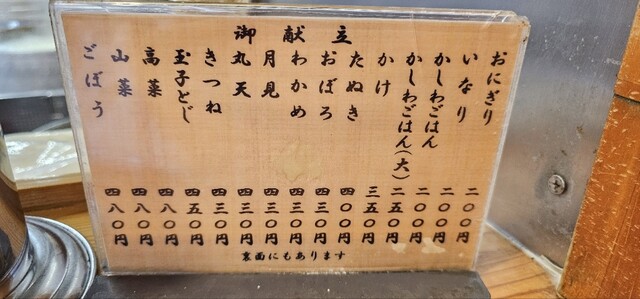 御献立
おにぎり 二〇〇円
いなり 二〇〇円
かしわごはん 二〇〇円
かしわごはん(大) 二五〇円
かけ 三五〇円
たぬき 四〇〇円
おぼろ 四三〇円
わかめ 四三〇円
月見 四三〇円
丸天 四三〇円
きつね 四三〇円
玉子とじ 四五〇円
高菜 四八〇円
山菜 四八〇円
ごぼう 四八〇円
裏面にもあります